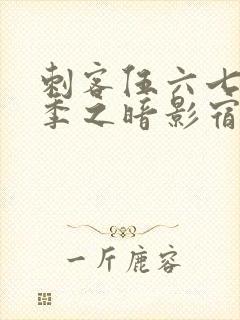 刺客伍六七
季之暗影宿
一斤鹿容